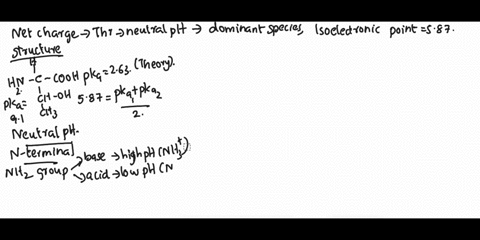 Net charge → Thr → neutral pH → dominant species, Isoelectronic point = 5.87.
structure
H
H2N - C - COOH pka1 = 2.63. (Theory).
pka2= CH - OH 5.87 = pka1 + pka2
9.1 CH3 2.
Neutral pH.
N-terminal
NH2 group → base → high pH (NH3+)
→ acid → low pH (N